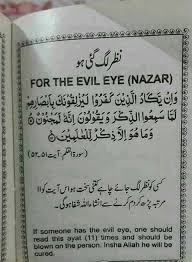 نظر لگ گئی ہو
FOR THE EVIL EYE (NAZAR)
وَاِنْ يَّكَادُ الَّذِيْنَ كَفَرُوْا لَيُزْلِقُوْنَكَ بِاَبْصَارِهِمْ
لَمَّا سَمِعُوا الذِّكْرَ وَيَقُوْلُوْنَ اِنَّهٗ لَمَجْنُوْنٌ
وَمَا هُوَ اِلَّا ذِكْرٌ لِّلْعٰلَمِيْنَ
(سورۃ القلم، آیت: ۵۱، ۵۲)
کسی کو نظر لگ جائے چاہے کتنی سخت ہو اس آیت کو اا
مرتبہ پڑھ کر دم کرنے سے انشاء اللہ شفا ہوگی۔
If someone has the evil eye, one should
read this ayat (11) times and should be
blown on the person. Insha Allah he will be
cured.